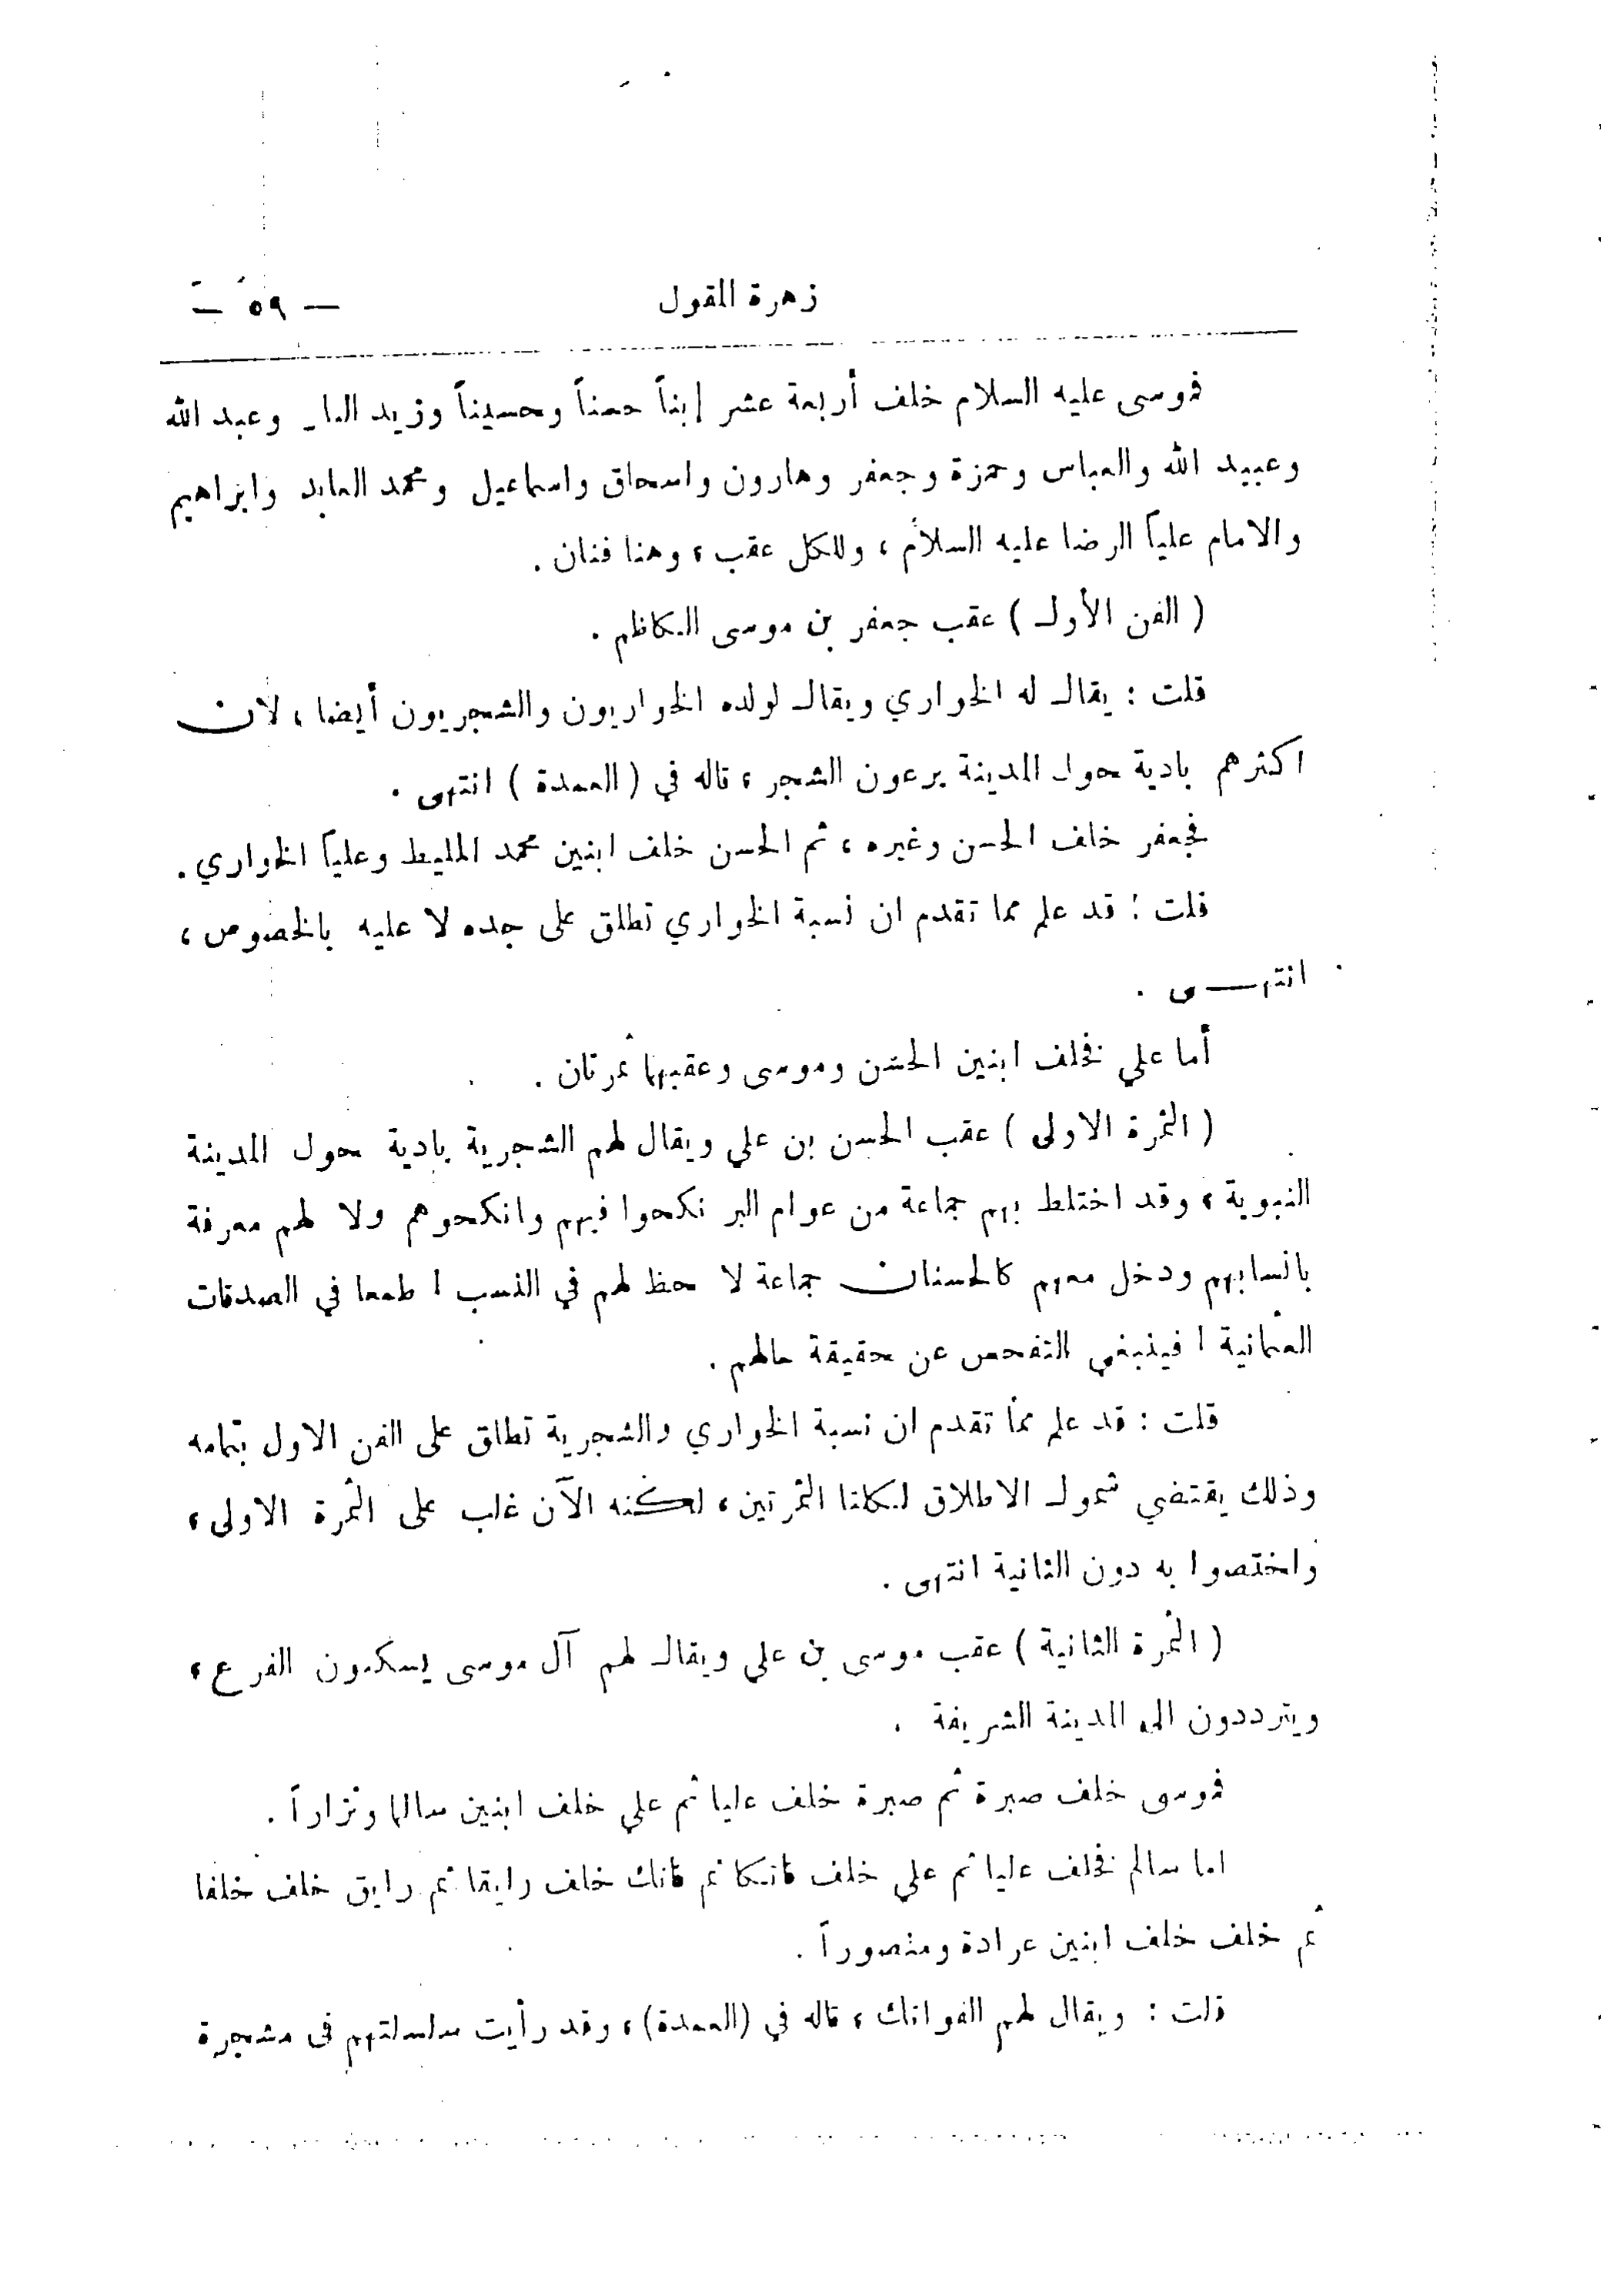 زهرة المقول
— ٥٩ —
فموسى عليه السلام خلف أربعة عشر إبناً حسناً وحسيناً وزيد النار وعبد الله
وعبيد الله والعباس وحمزة وجعفر وهارون واسحاق واسماعيل ومحمد العابد وابراهيم
والامام علياً الرضا عليه السلام ، وللكل عقب ، وهنا فنان .
( الفن الأول ) عقب جعفر بن موسى الكاظم .
قلت : يقال له الخواري ويقال لولده الخواريون والشجريون أيضا ، لان
اكثرهم بادية حول المدينة يرعون الشجر ، قاله في ( العمدة ) انتهى .
فجعفر خلف الحسن وغيره ، ثم الحسن خلف ابنين محمد المليط وعلياً الخواري .
قلت : قد علم مما تقدم ان نسبة الخواري تطلق على جده لا عليه بالخصوص ،
انتهـــى .
أما علي فخلف ابنين الحسن وموسى وعقبهما ثمرتان .
( الثمرة الاولى ) عقب الحسن بن علي ويقال لهم الشجرية بادية حول المدينة
النبوية ، وقد اختلط بهم جماعة من عوام البر نكحوا فيهم وانكحوهم ولا لهم معرفة
بانسابهم ودخل معهم كالحسنان جماعة لا حظ لهم في النسب ! طمعا في الصدقات
العثمانية ! فينبغي التفحص عن حقيقة حالهم .
قلت : قد علم مما تقدم ان نسبة الخواري والشجرية تطلق على الفن الاول بتمامه
وذلك يقتضي شمول الاطلاق لكلتا الثمرتين ، لكنه الآن غلب على الثمرة الاولى ،
واختصوا به دون الثانية انتهى .
( الثمرة الثانية ) عقب موسى بن علي ويقال لهم آل موسى يسكنون الفرع ،
ويترددون الى المدينة الشريفة .
فموسى خلف صبرة ثم صبرة خلف عليا ثم علي خلف ابنين سالما ونزاراً .
اما سالم فخلف عليا ثم علي خلف فانكا ثم فانك خلف رايقا ثم رايق خلف خلفا
ثم خلف خلف ابنين عرادة ومنصوراً .
قلت : ويقال لهم الفوانك ، قاله في (العمدة) ، وقد رأيت سلسلتهم في مشجرة